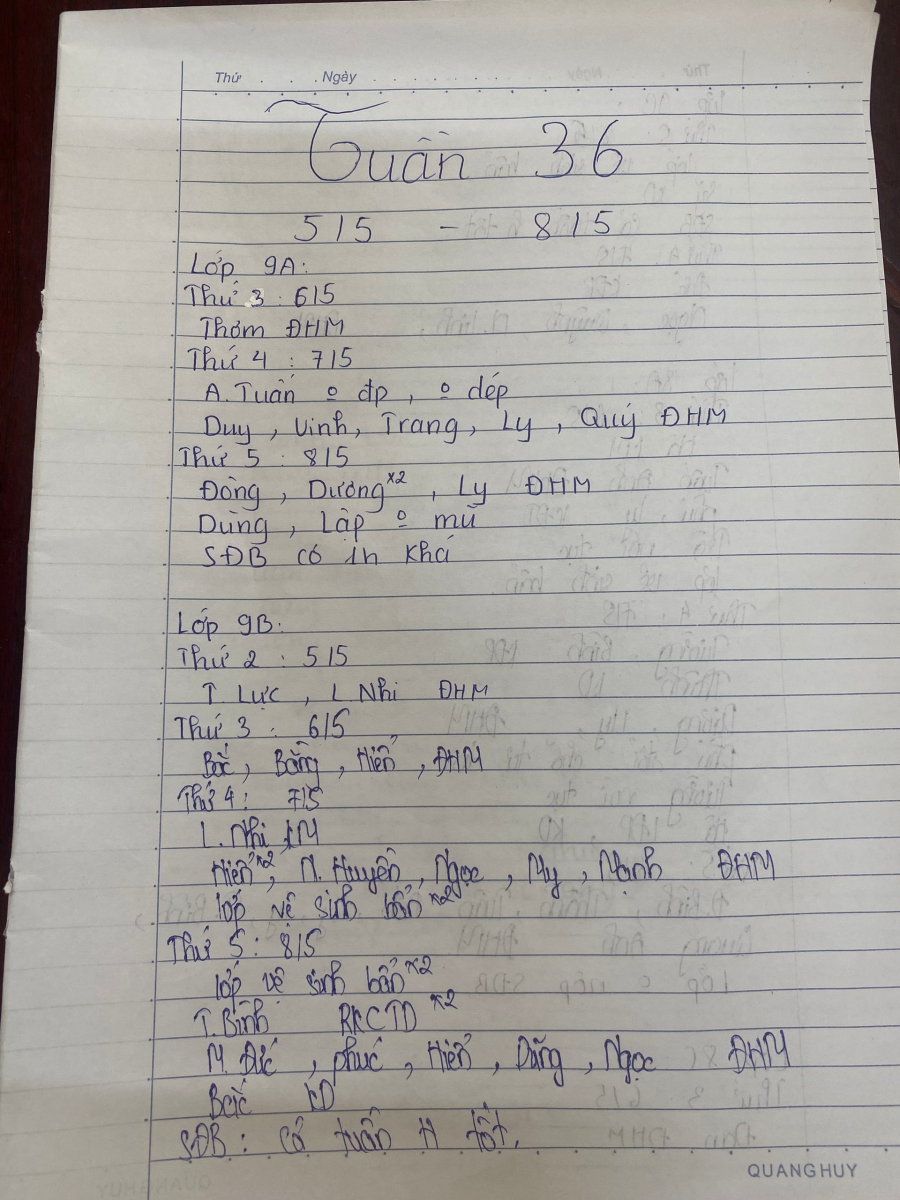 Thứ . . . Ngày . . . . . . . . . . .
Tuần 36
5/5 - 8/5
Lớp 9A:
Thứ 3 : 6/5
Thơm ĐHM
Thứ 4 : 7/5
A. Tuấn o đp , o dép
Duy , Vinh , Trang , Ly , Quý ĐHM
Thứ 5 : 8/5
Đông , Dương x2 , Ly ĐHM
Dũng , Lập o mũ
SĐB có 1h Khá
Lớp 9B:
Thứ 2 : 5/5
T. Lực , L Nhi ĐHM
Thứ 3 : 6/5
Bắc , Bằng , Hiển , ĐHM
Thứ 4 : 7/5
L. Nhi
Hiển x2 , N. Huyền , Ngọc , My , Mạnh ĐHM
lớp vệ sinh bẩn x2
Thứ 5 : 8/5
lớp vệ sinh bẩn x2
T. Bình RKCTD x2
M. Đức , phúc , Hiển , Dũng , Ngọc ĐHM
Bắc KD
SĐB : Cả tuần H tốt.
QUANG HUY